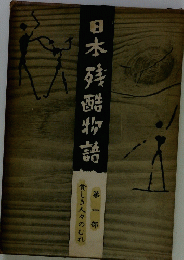 日本残酷物語
第一部
貧しき人々のむれ